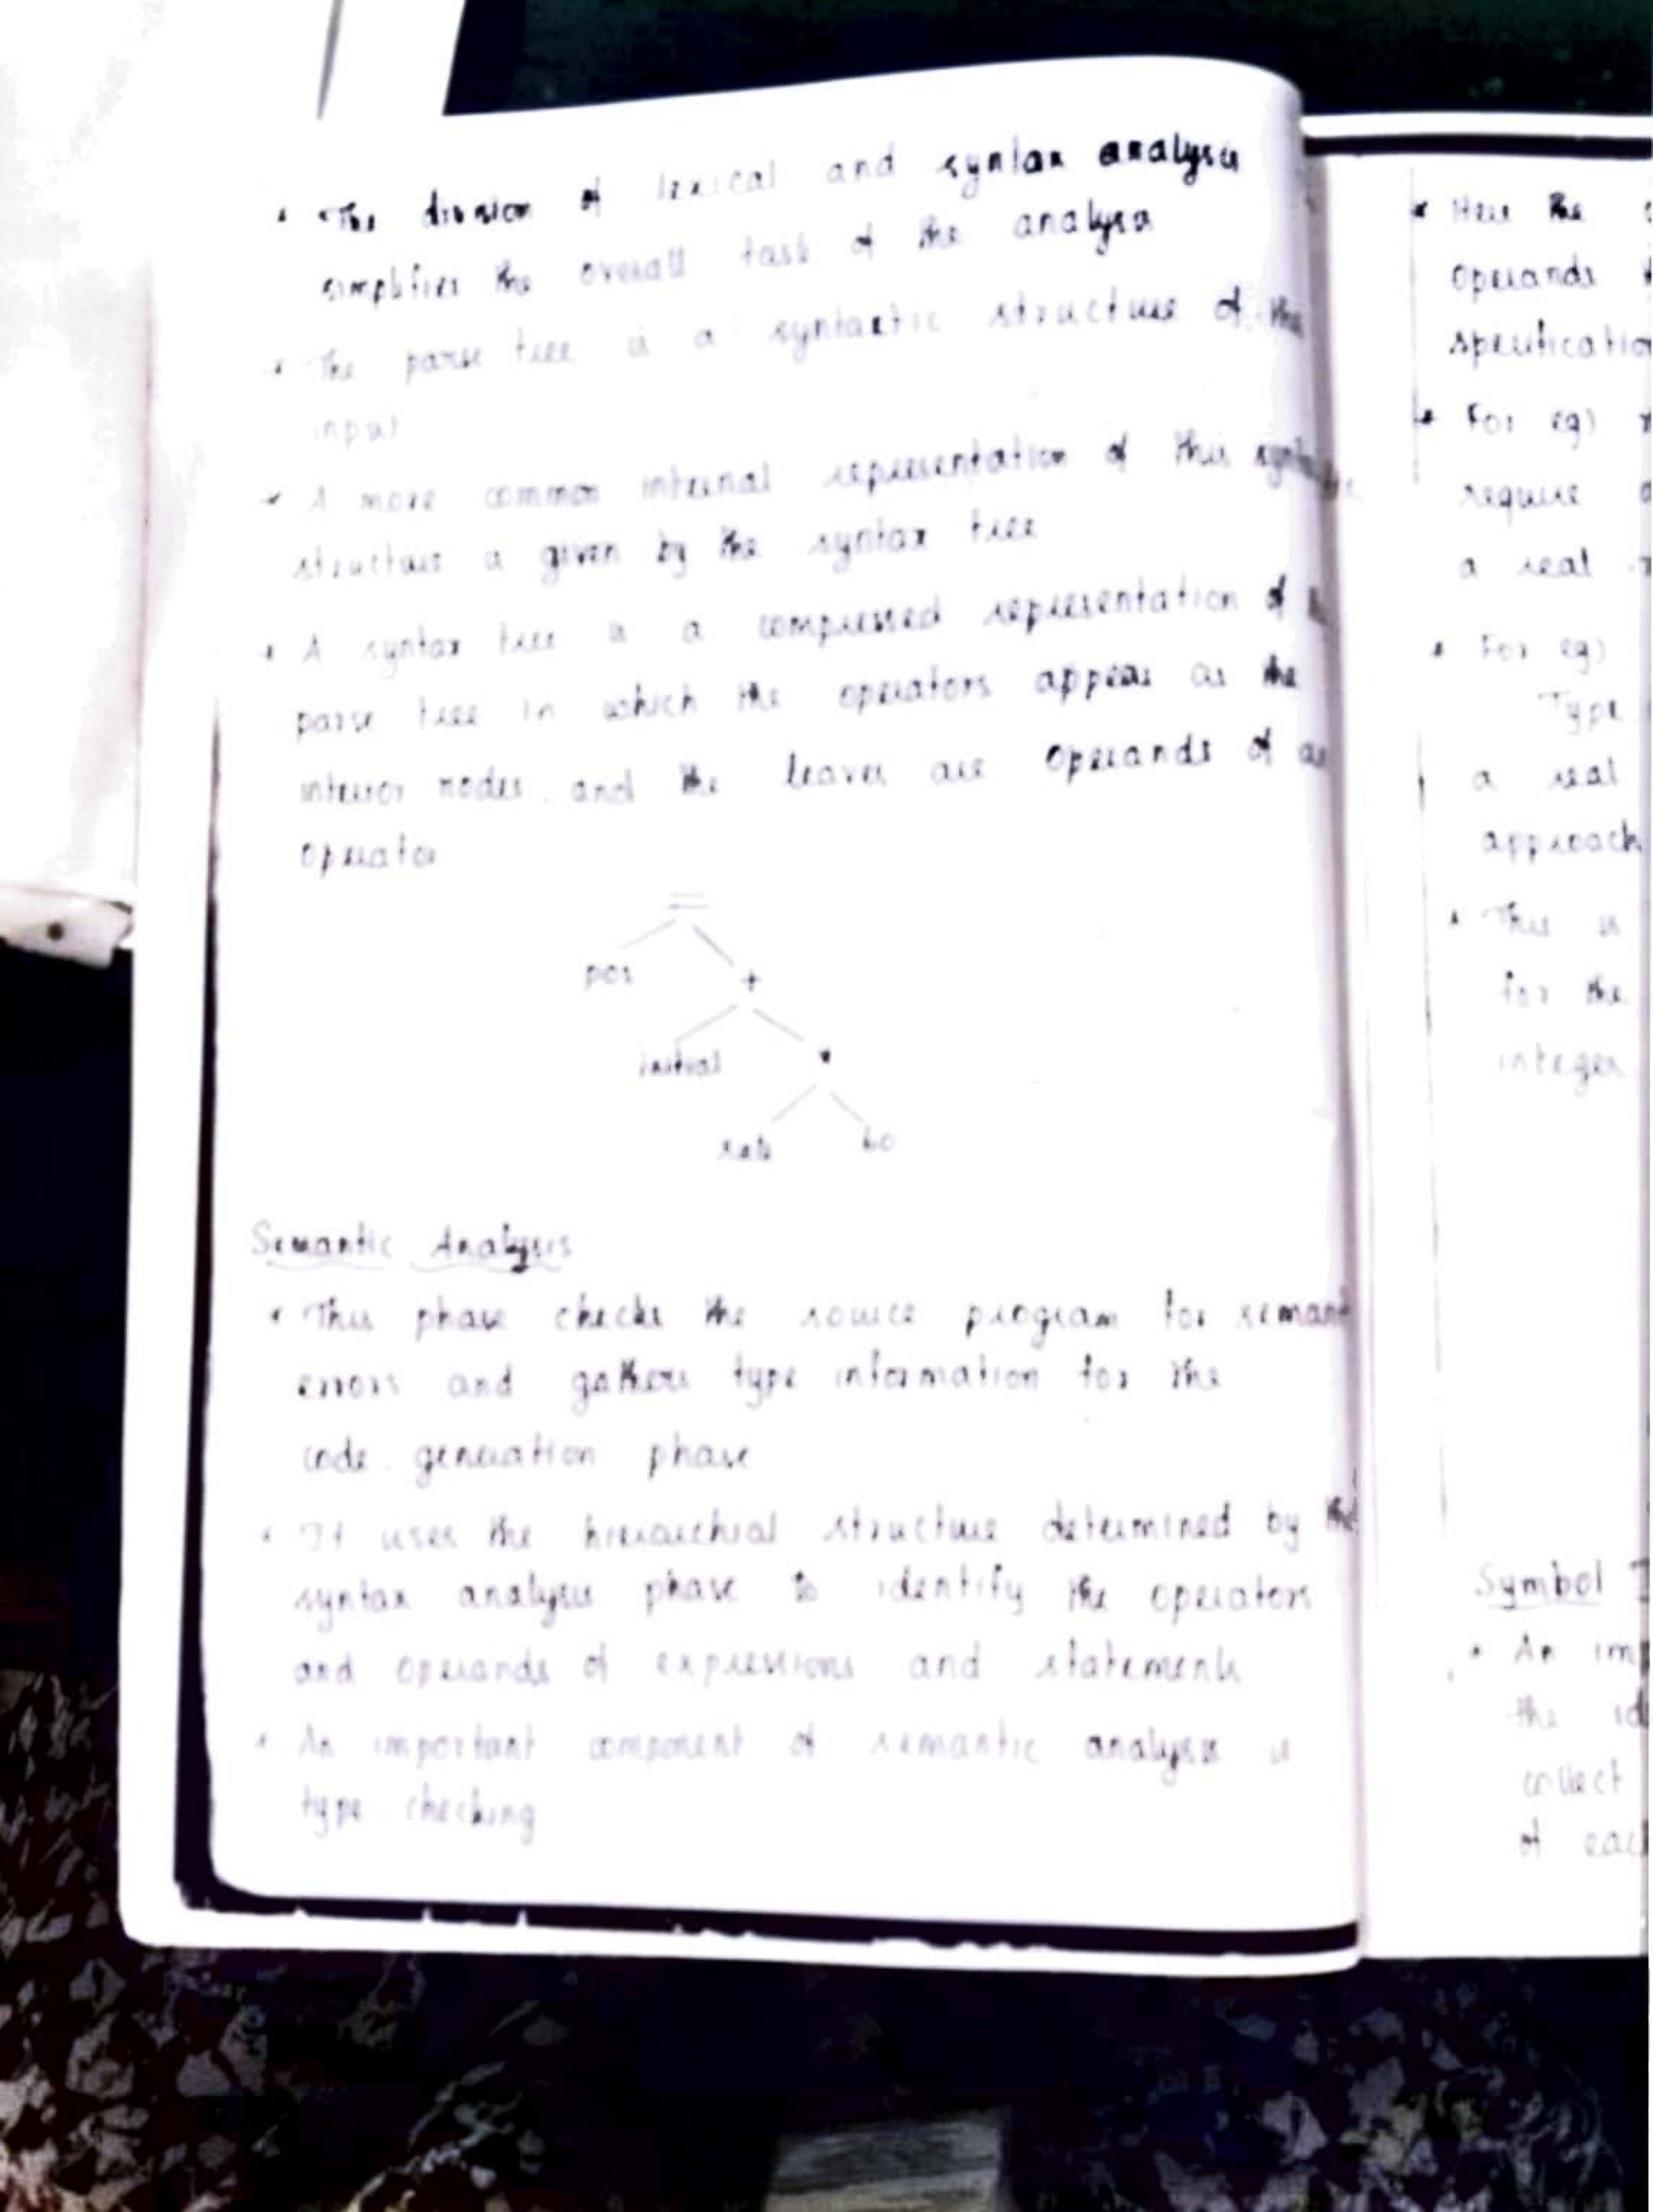 * The division of lexical and syntax analysis
simplifies the overall task of the analysis
* The parse tree is a syntactic structure of the
input
* A more common internal representation of this
structure is given by the syntax tree
* A syntax tree is a compressed representation of
parse tree in which the operators appear as the
interior nodes and the leaves are operands of
operator
=
pos
+
initial
*
rate
60
Semantic Analysis
* This phase checks the source program for semant
errors and gathers type information for the
code generation phase
* It uses the hierarchial structure determined by the
syntax analysis phase to identify the operators
and operands of expressions and statements
* An important component of semantic analysis is
type checking
* Here the
operands
specification
* For eg)
require
a real
* For eg)
Type
a real
approach
* This is
for the
integer
Symbol
* An imp
the id
collect
of eac